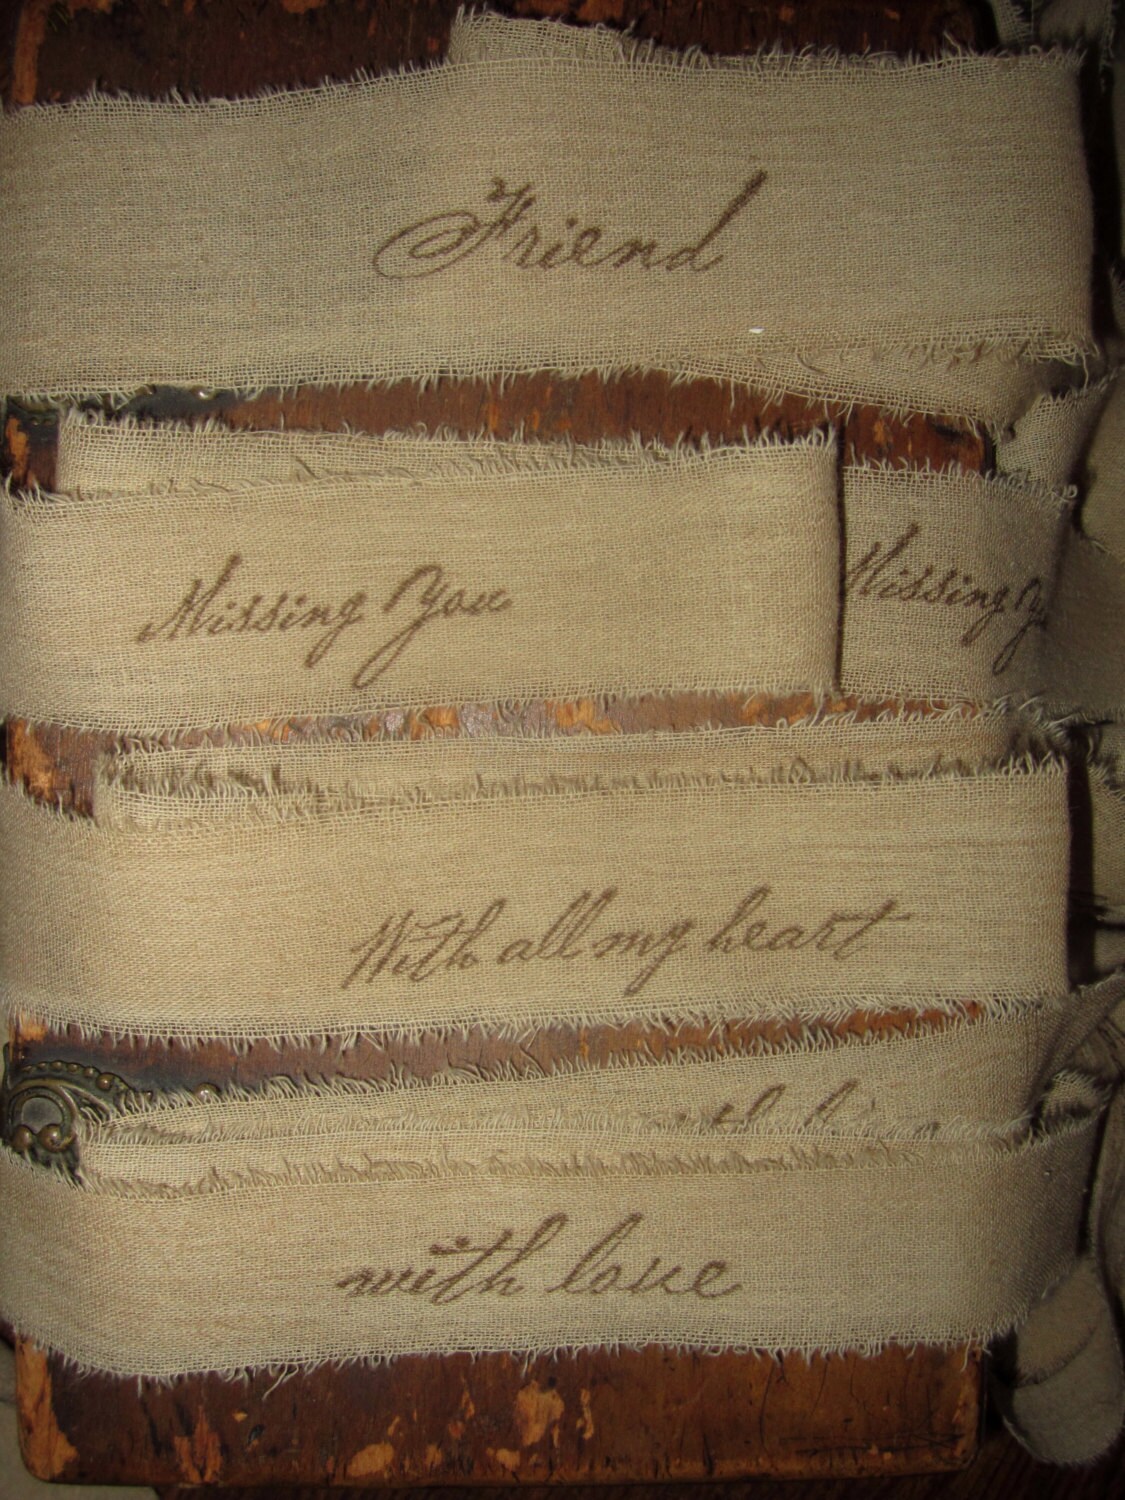 Friend
Missing You
Missing
With all my heart
with love